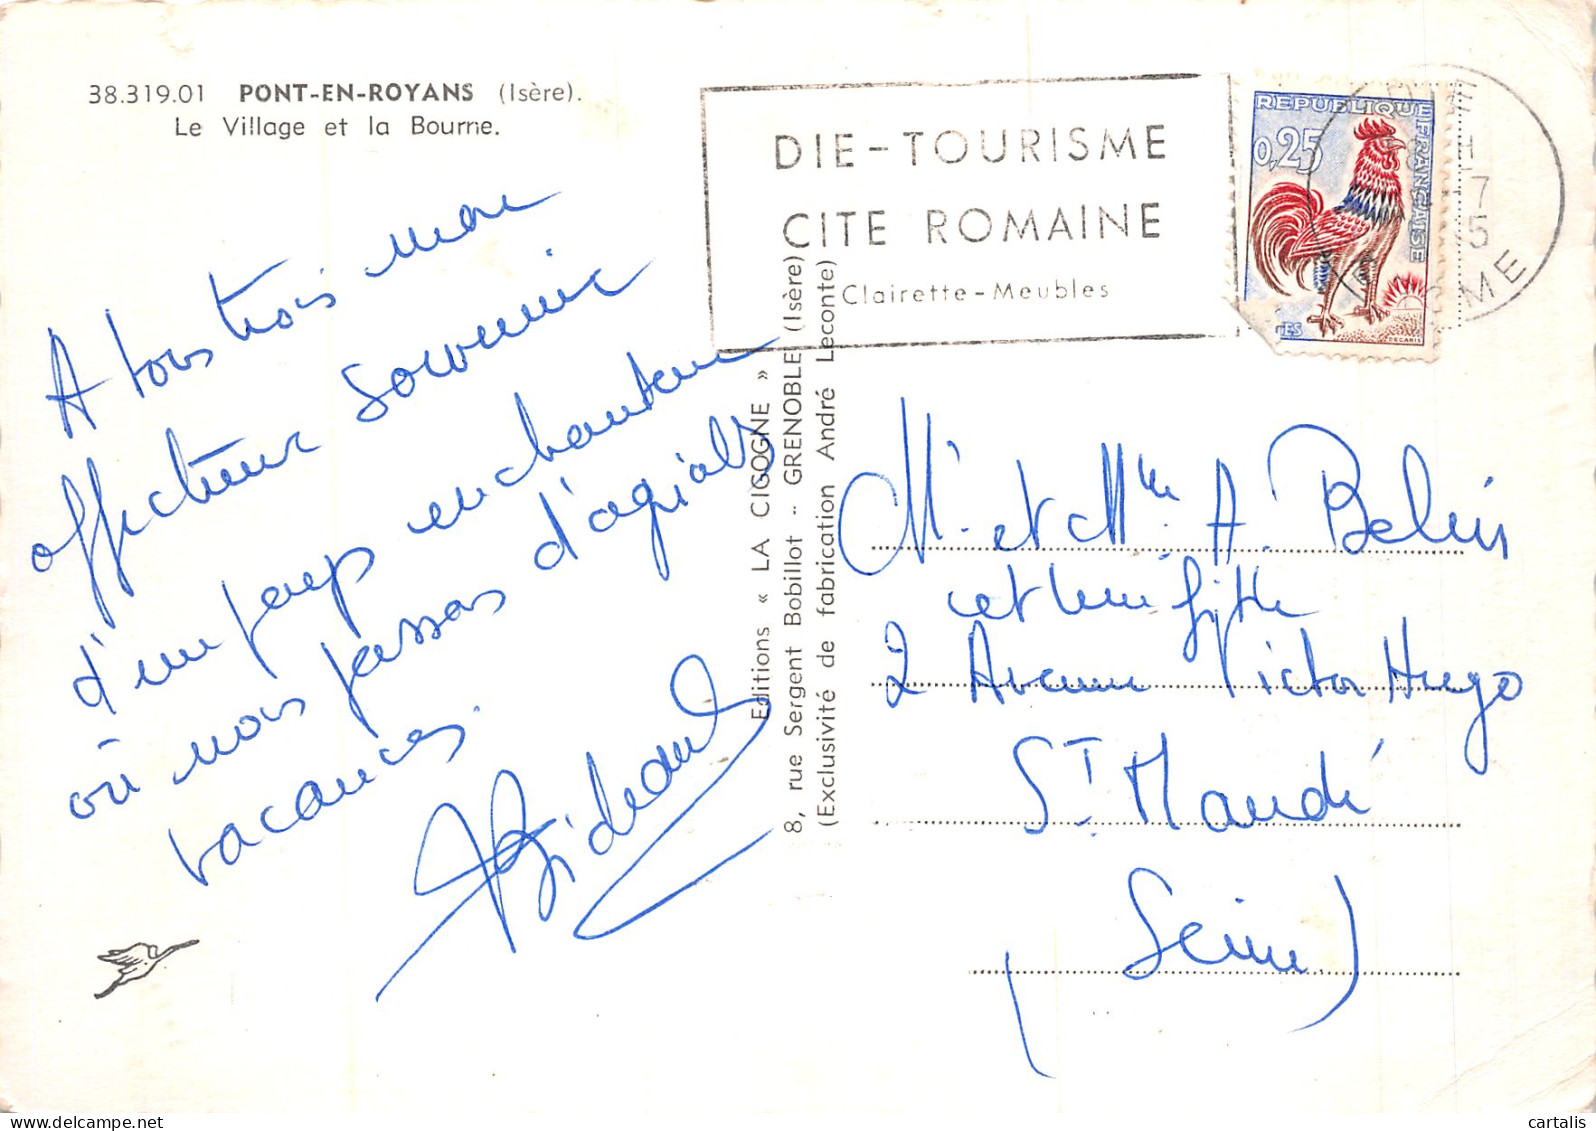 38.319.01 PONT-EN-ROYANS (Isère).
Le Village et la Bourne.
A tous trois mon
affectueux souvenir
d'un pays enchanteur
où nous passons d'agréables
vacances.
Editions « LA CIGOGNE »
8, rue Sergent Bobillot - GRENOBLE (Isère)
(Exclusivité de fabrication André Leconte)
DIE-TOURISME
CITE ROMAINE
Clairette-Meubles
REPUBLIQUE FRANÇAISE
0,25
DECARIS
DIE
DROME
Mr et Mme A. Belin
et leur fille
2 Avenue Victor Hugo
St Mandé
(Seine)
cartalis
delcampe.net